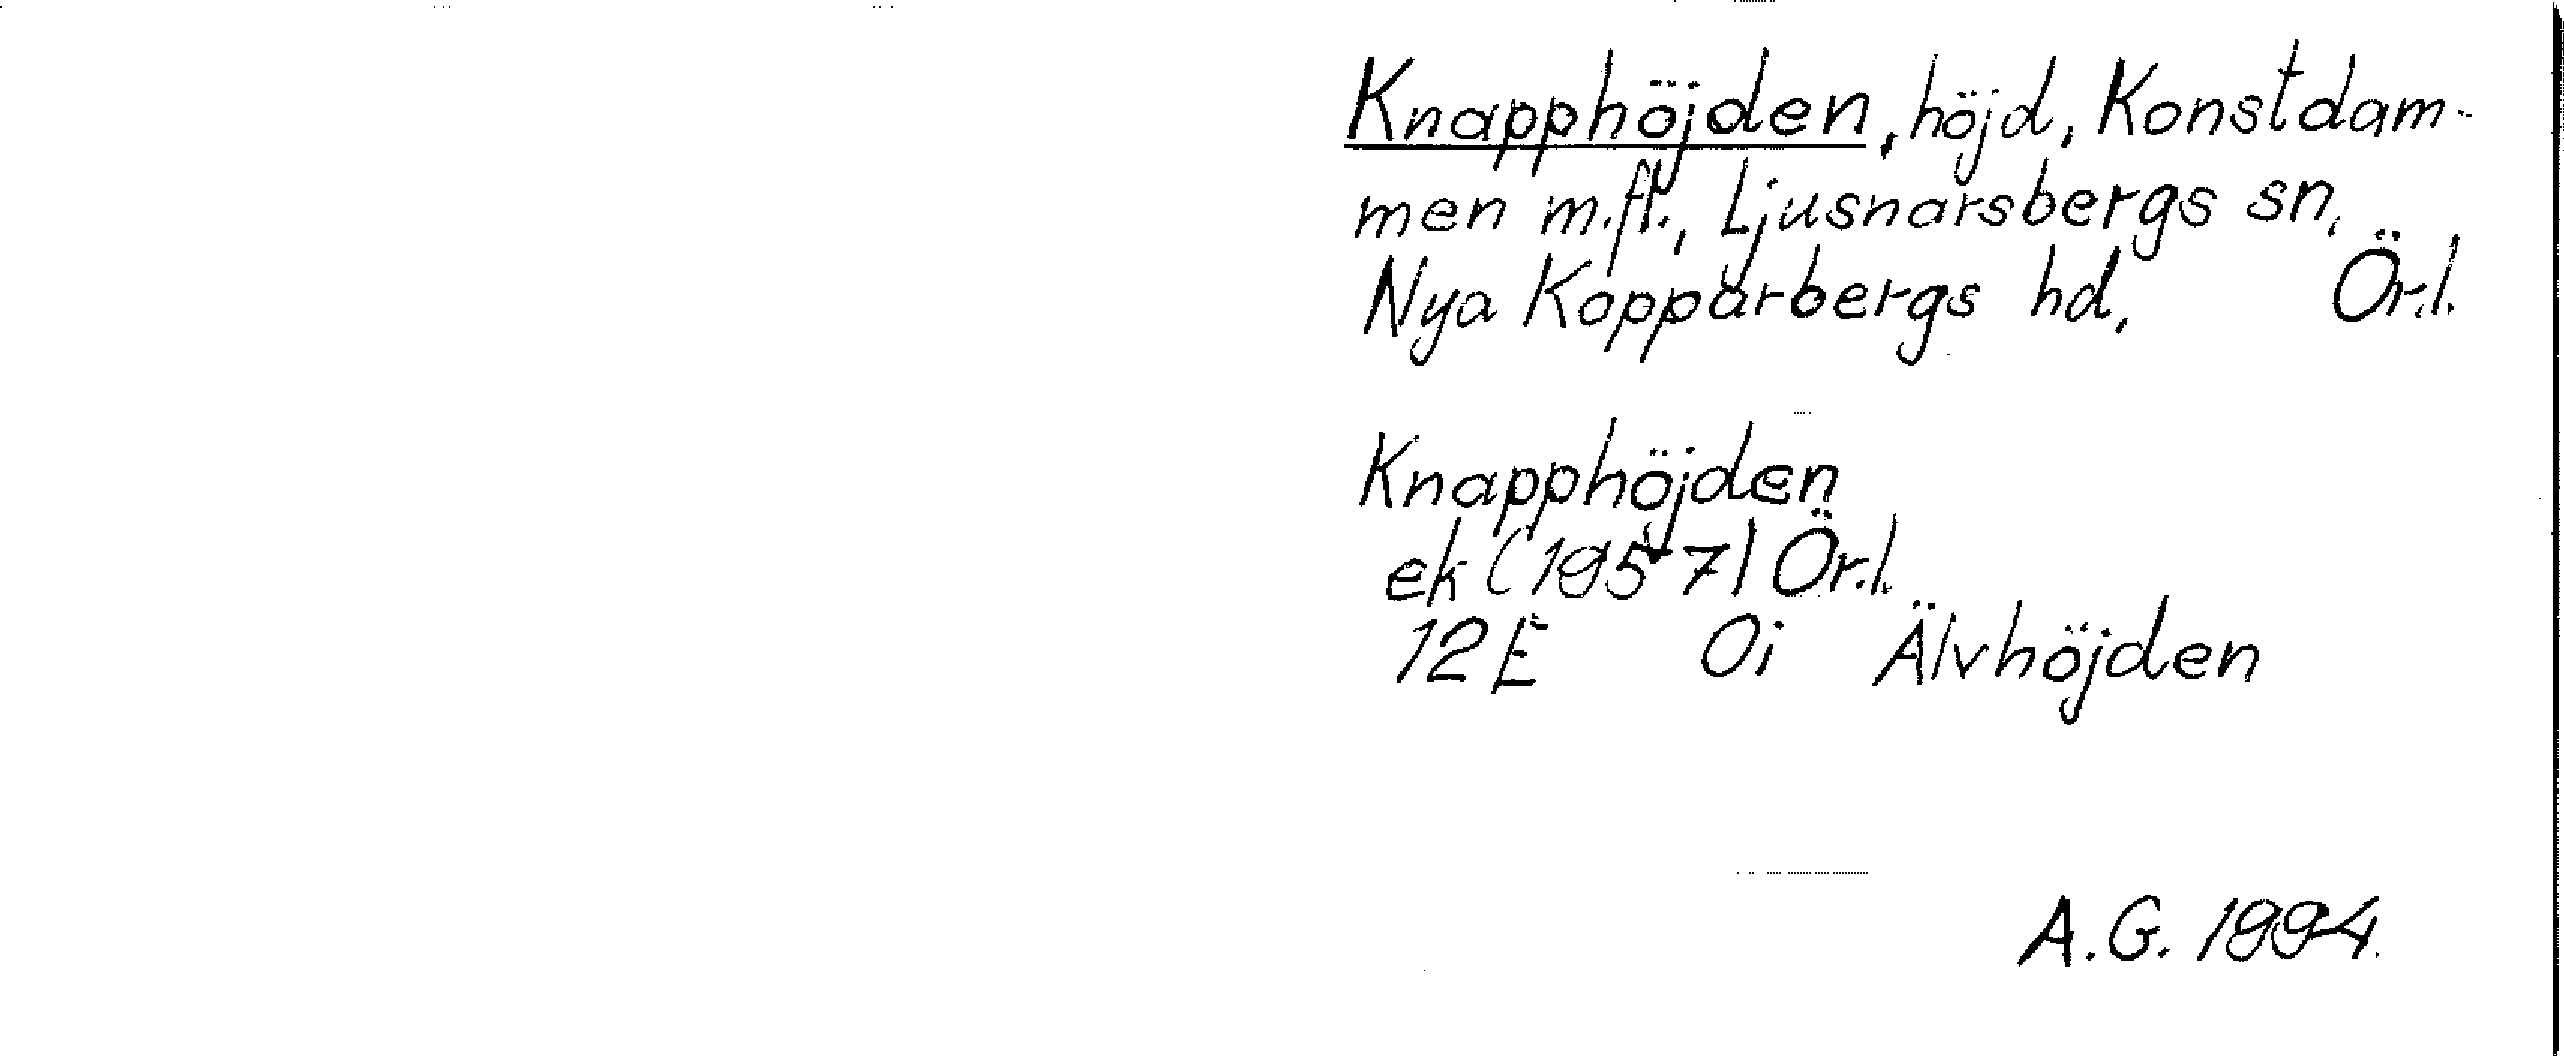 Knapphöjden, höjd, Konstdam-
men m.fl., Ljusnarsbergs sn,
Nya Kopparbergs hd, Ör.l.
Knapphöjden
ek (1957) Ör.l.
12E 0i Älvhöjden
A.G. 1994.